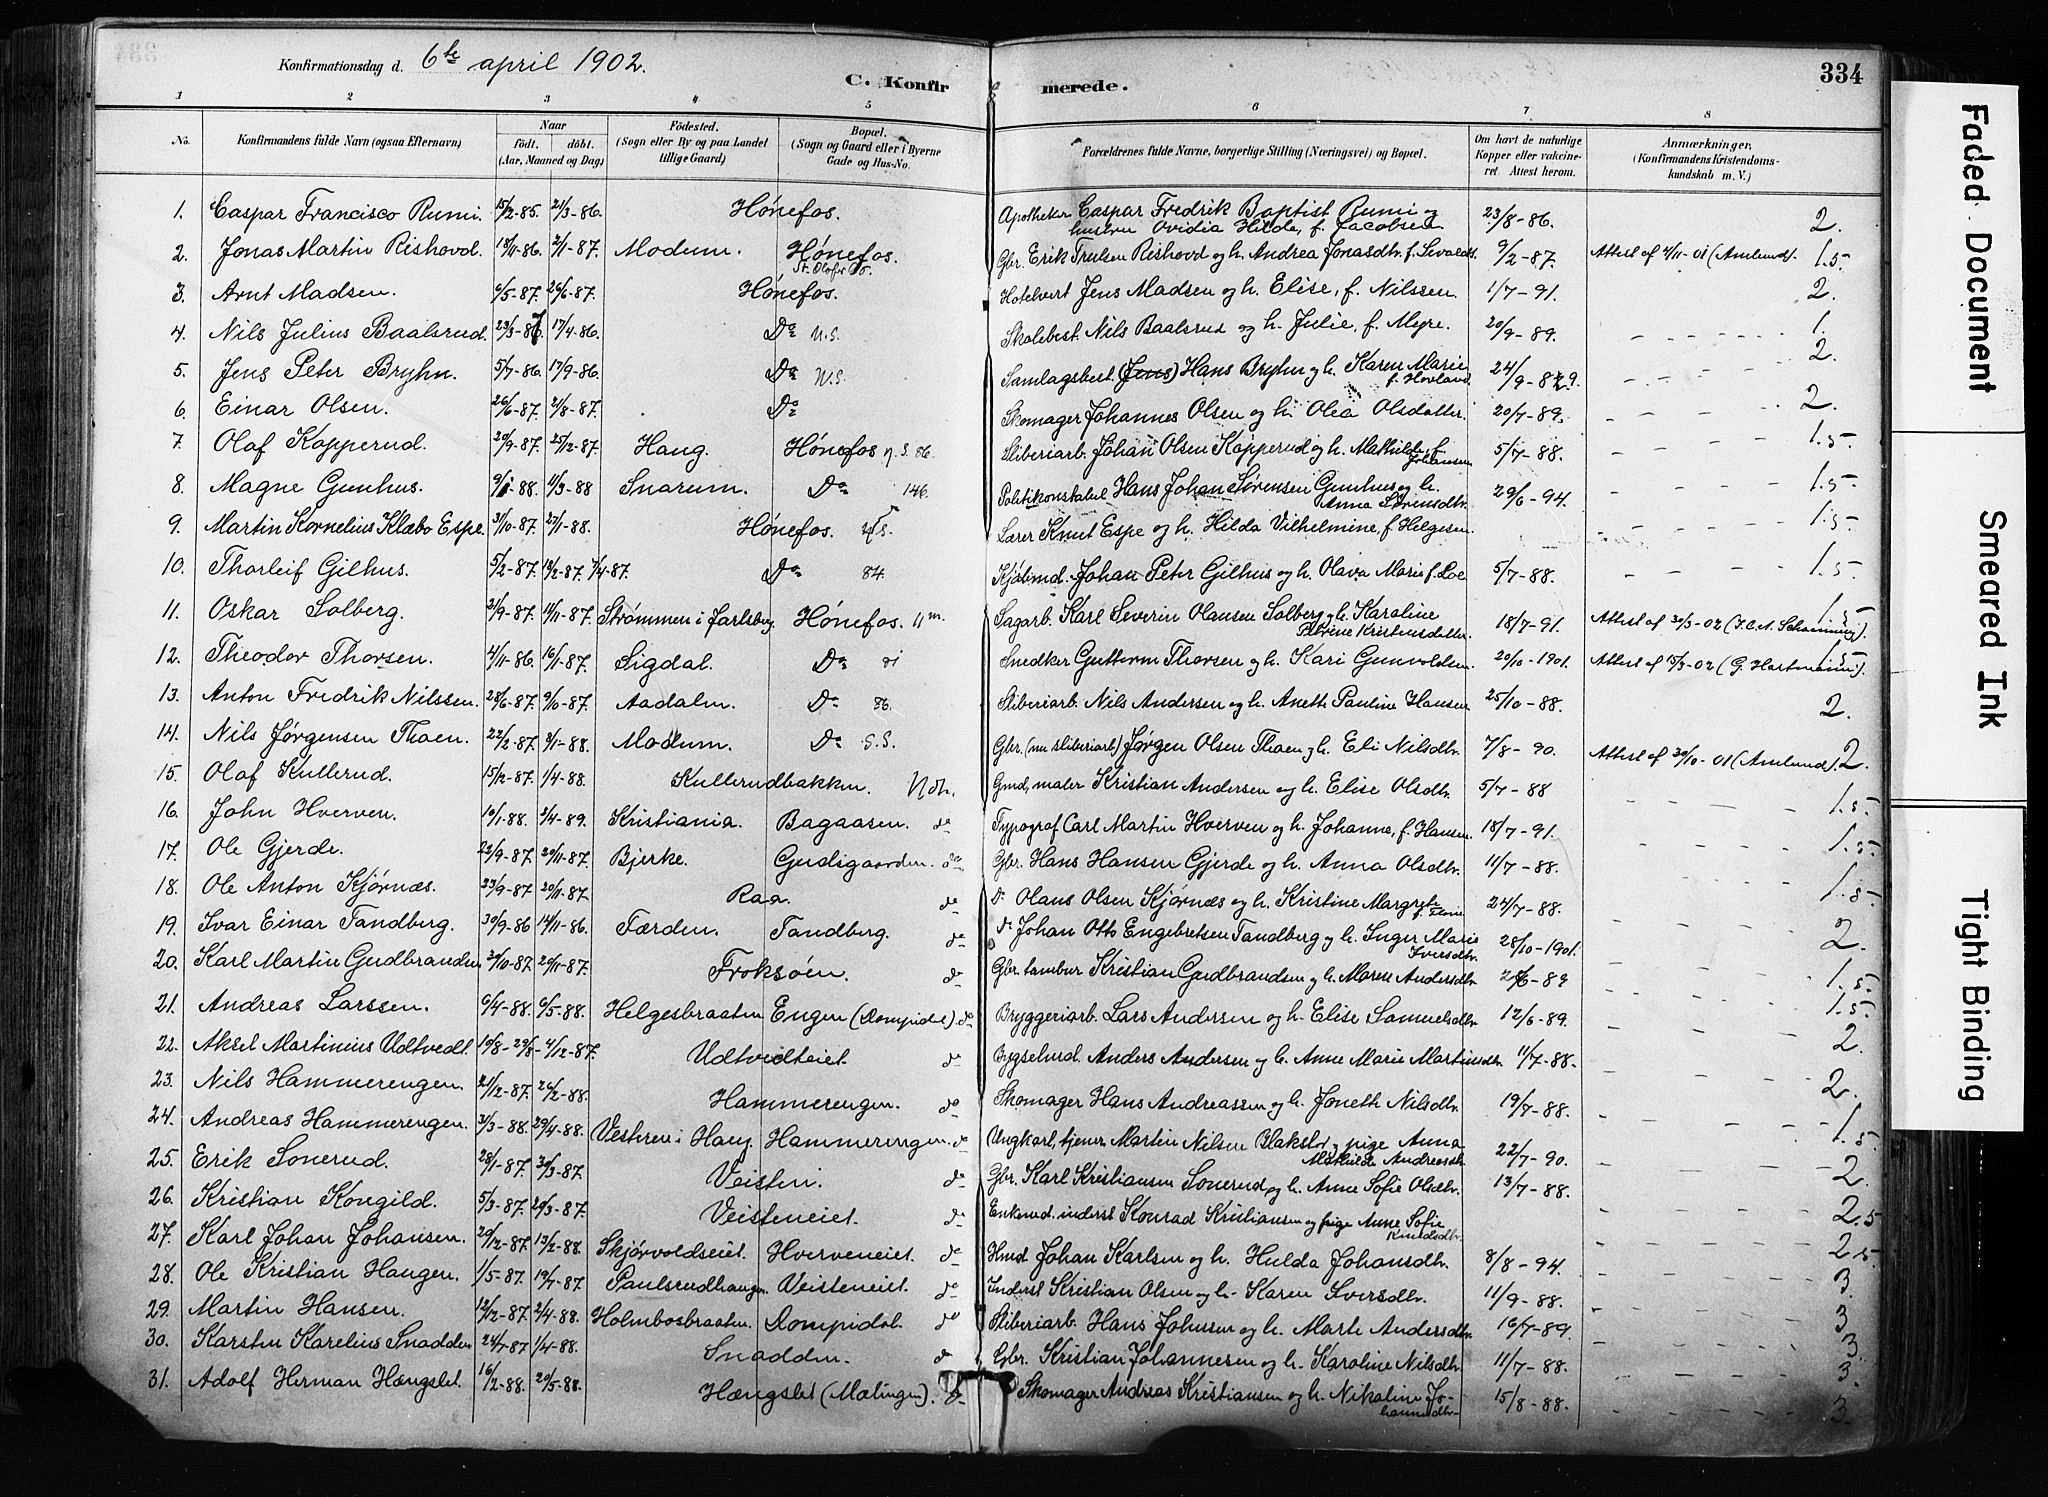 Konfirmationsdag d. 6te april 1902.
C. Konfirmerede.
334
1 2 3 4 5 6 7 8
No. | Konfirmandens fulde Navn (ogsaa Efternavn) | Naar født. døbt. (Aar, Maaned og Dag) | Fødested. (Sogn eller By og paa Landet tillige Gaard) | Bopæl. (Sogn og Gaard eller i Byerne Gade og Hus-No.) | Forældrenes fulde Navne, borgerlige Stilling (Næringsvei) og Bopæl. | Om havt de naturlige Kopper eller vakcineret. Attest herom. | Anmærkninger. (Konfirmandens Kristendomskundskab m. V.)
1. Caspar Francisco Rumi. 15/2-85. 21/3-86. Hønefos. Apotheker Caspar Fredrik Baptist Rumi og hustru Ovidia Hilda, f. Jacobsen 23/8-86. 2.
2. Jonas Martin Rishovd. 18/11-86. 2/1-87. Modum. Hønefos. St. Olafsg. Gbr. Erik Trulsen Rishovd og h. Andrea Jonasdtr. 9/2-87. Attest af 4/11-01 (Amlund). 1.5.
3. Arnt Madsen. 6/5-87. 26/6-87. Hønefos. Hotelvert Jens Madsen og h. Elise, f. Nilssen. 1/7-91. 2.
4. Nils Julius Baalsrud. 17/4-86. Do N.S. Skolebest. Nils Baalsrud og h. Julie, f. Myre. 20/9-89. 1.
5. Jens Peter Bryhn. 5/7-86. 17/9-86. Do N.S. Samlagsbest. (Jens) Hans Bryhn og h. Karen Marie f. Hovland. 2.
6. Einar Olsen. 26/6-87. 21/8-87. Do Skomager Johannes Olsen og h. Olea Olsdatter. 20/7-89. 2.
7. Olaf Kopperud. 20/9-87. 25/12-87. Haug. Hønefos N.S. 86. Sliberiarb. Johan Olsen Kopperud og h. Mathilde, f. Johansen 5/7-88. 1.5.
8. Magne Gunhus. 11/3-88 Snarum. Do 146. Politikonstabel Hans Johan Sørensen Gunhus og h. Anna 29/6-94. 1.5.
9. Martin Kornelius Klæbo Espe. 31/10-87. 27/1-88. Hønefos. N.S. Lærer Knut Espe og h. Hilda Vilhelmine, f. Helgesen. 1.5.
10. Thorleif Gilhus. 5/2-87. 13/2-87. 7/4-87. Do 84. Kjøbmd. Johan Peter Gilhus og h. Olava Marie f. Loe 5/7-88. 1.5.
11. Oskar Solberg. 21/9-87. 14/11-87. Strømmen i Jarlsberg Hønefos. Sagarb. Karl Severin Olausen Solberg og h. Karoline Petrine Kristensdatter. 18/7-91. Attest af 30/3-02 1.5
12. Theodor Thorsen. 4/11-86. 16/1-87. Sigdal. Do Snedker Guttorm Thorsen og h. Kari Gunvoldsen. 20/10-1901. Attest af 15/3-02 1.5
13. Anton Fredrik Nilssen. 28/6-87. 9/10-87. Aadalen. Do 86. Sliberiarb. Nils Andersen og h. Anette Pauline Hansen 25/10-88. 2.
14. Nils Jørgensen Thoen. 22/12-87. 8/1-88. Modum. Do S.S. Gbr. (nu sliberiarb) Jørgen Olsen Thoen og h. Eli Nilsdtr. 7/8-90. Attest af 30/10-01 (Amlund). 2.
15. Olaf Kullerud. 15/12-87. 1/4-88. Kullerudbakken. Ndr. Gmd, maler Kristian Andersen og h. Elise Olsdtr. 5/7-88
16. John Hverven. 10/1-88. 2/4-89. Kristiania. Bagaasen. do Typograf Carl Martin Hverven og h. Johanne, f. Hansen. 18/7-91. 1.5
17. Ole Gjerde. 23/9-87. 20/11-87. Bjerke. Gudsgaarden. do Gbr. Hans Hansen Gjerde og h. Anna Olsdtr. 11/7-88. 1.5.
18. Ole Anton Kjørnæs. 23/9-87. 20/11-87. Raa. do Do Olaus Olsen Kjørnæs og h. Kristine Margrete 24/7-88. 1.5
19. Ivar Einar Tandberg. 30/9-86 14/11-86. Færden. Tandberg. do Do Johan Otto Engebretsen Tandberg og h. Inger Marie Iversdtr. 28/10-1901. 2.
20. Karl Martin Gudbrandsen 30/10-87. 20/11-87. Froksøen. do Gbr. tambur Kristian Gudbrandsen og h. Maren Andersdtr. 1.5
21. Andreas Larssen. 6/4-88. 6/5-88. Helgesbraaten Engen (Dompidal). do Bryggeriarb. Lars Andersen og h. Elise Samuelsdtr. 12/6-89. 1.5.
22. Aksel Martinius Udtvedt. 4/12-87. Udtvedteiet. do Bygselmd. Anders Andersen og h. Anne Marie Martinsdtr. 11/7-88. 2.
23. Nils Hammerengen. 21/12-87. 26/2-88. Hammerengen. do Skomager Hans Andreassen og h. Joneth Nilsdtr. 19/7-88. 2.
24. Andreas Hammerengen. 31/3-88. 29/4-88. Vestren i Haug. Hammerengen. do Ungkarl, tjener Martin Nilsen og pige Anna Mathilde Andreasdtr. 22/7-90. 1.5
25. Erik Sonerud. 28/1-87. 31/3-87. Veisten. do Gbr. Karl Kristiansen Sonerud og h. Anne Sofie Olsdtr. 13/7-88. 2.
26. Kristian Kongild. 5/3-87. 29/3-87. Veisteneiet. do Enkemd. inderst Konrad Kristiansen og pige Anne Sofie Knudsdtr. 2.5
27. Karl Johan Johansen. 20/12-87. 13/2-88. Skjørvoldseiet. Hverveneiet. do Hmd Johan Karlsen og h. Hulda Johansdtr. 8/8-94. 2.5
28. Ole Kristian Haugen. 1/5-87. 19/7-87. Paulsrudhaugen Veisteneiet. do Inderst Kristian Olsen og h. Karen Iversdtr. 11/9-88. 3.
29. Martin Hansen. 12/12-87. 2/4-88. Holmbosbraaten. Dompidal. do Sliberiarb. Hans Johnsen og h. Marte Andersdtr. 16/7-89. 3
30. Karsten Karelius Snadden 24/7-87 1/4-88. Snadden. do Gbr. Kristian Johannesen og h. Karoline Nilsdtr. 11/7-88. 3.
31. Adolf Herman Hængslet. 16/2-88. 20/5-88. Hængslet (Mælingen). do Skomager Andreas Kristiansen og h. Nikoline Johannesdtr. 15/8-88. 3.
Faded Document
Smeared Ink
Tight Binding